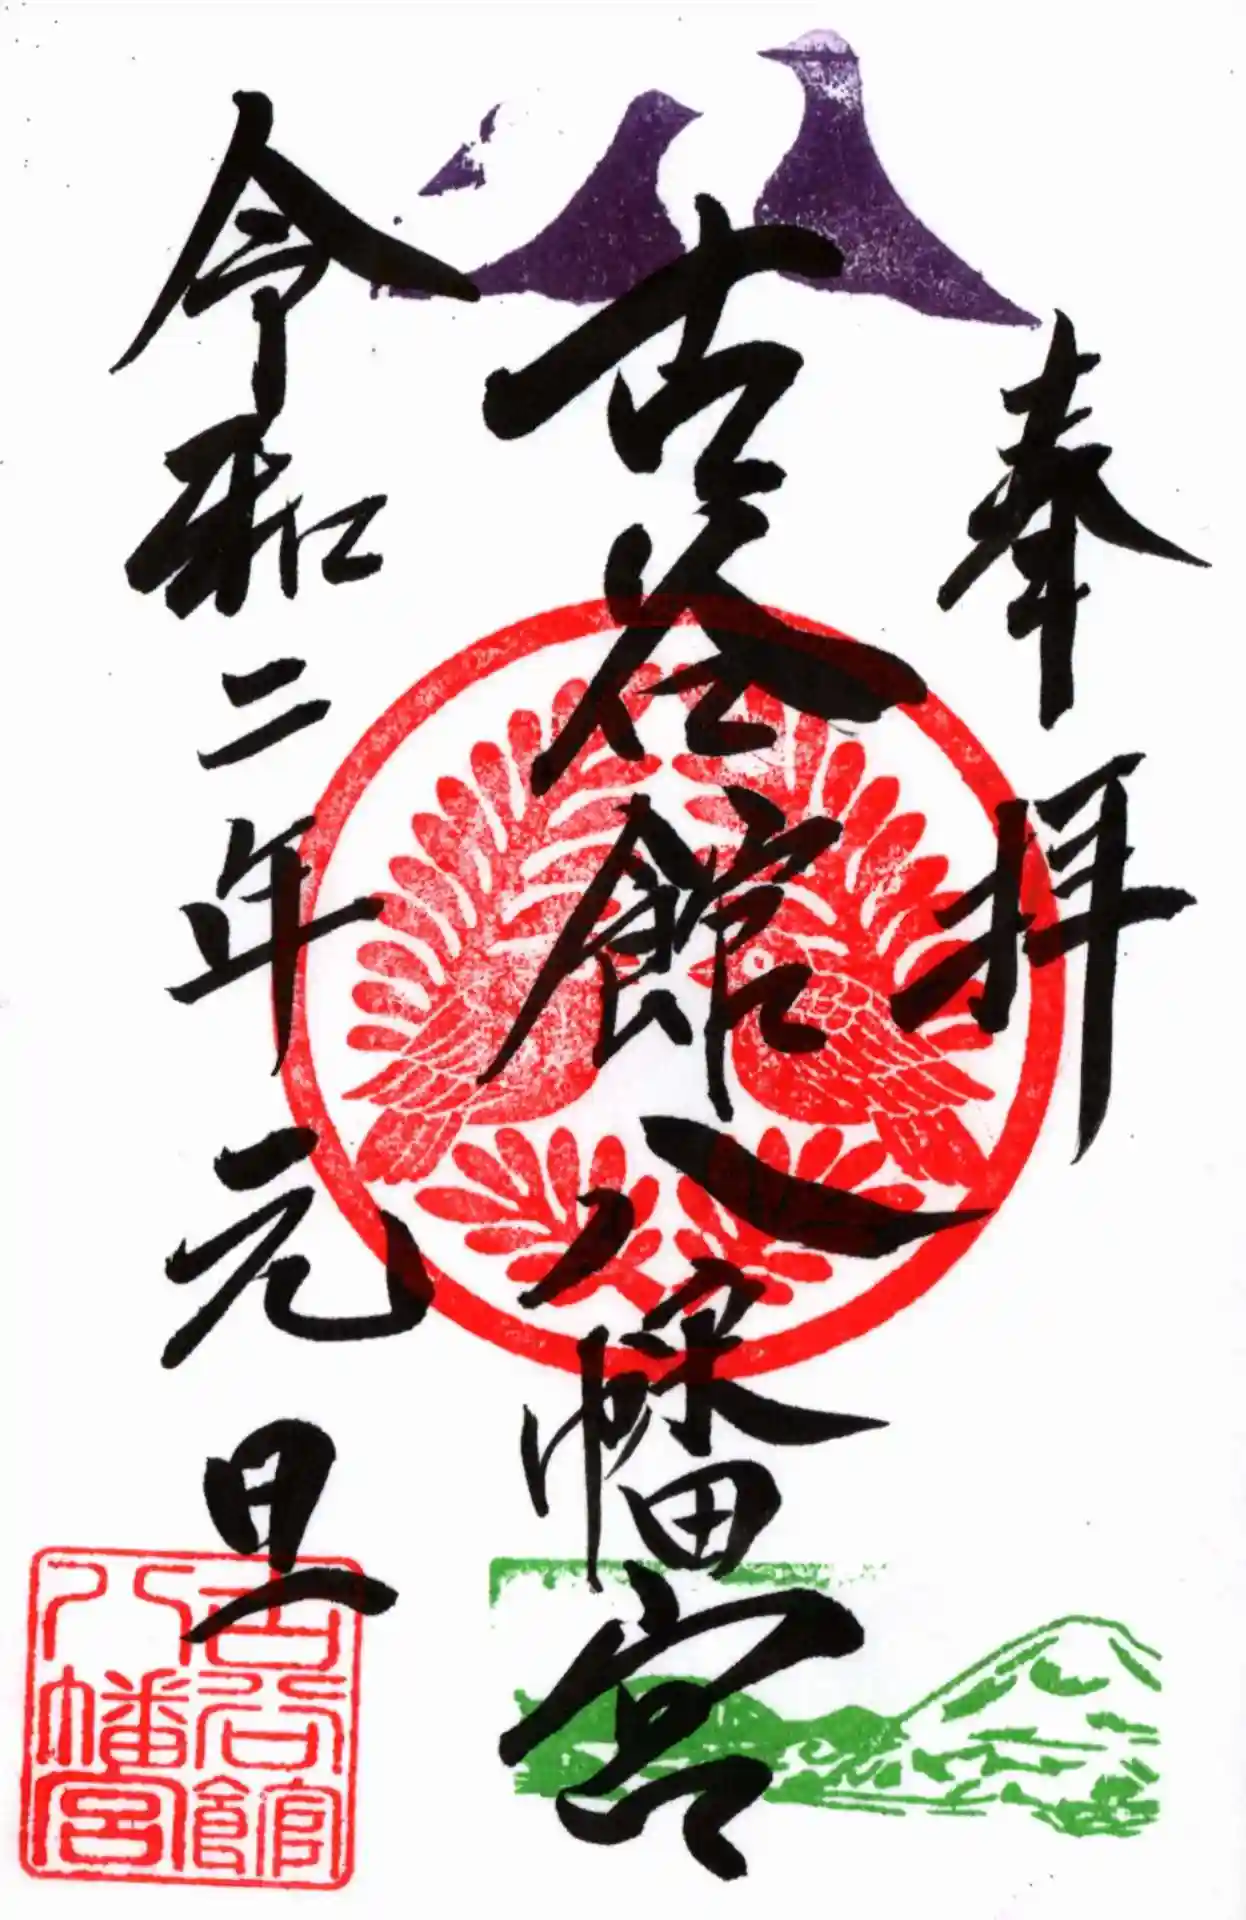 奉拝
古谷館八幡宮
令和二年元旦
古谷館
八幡宮